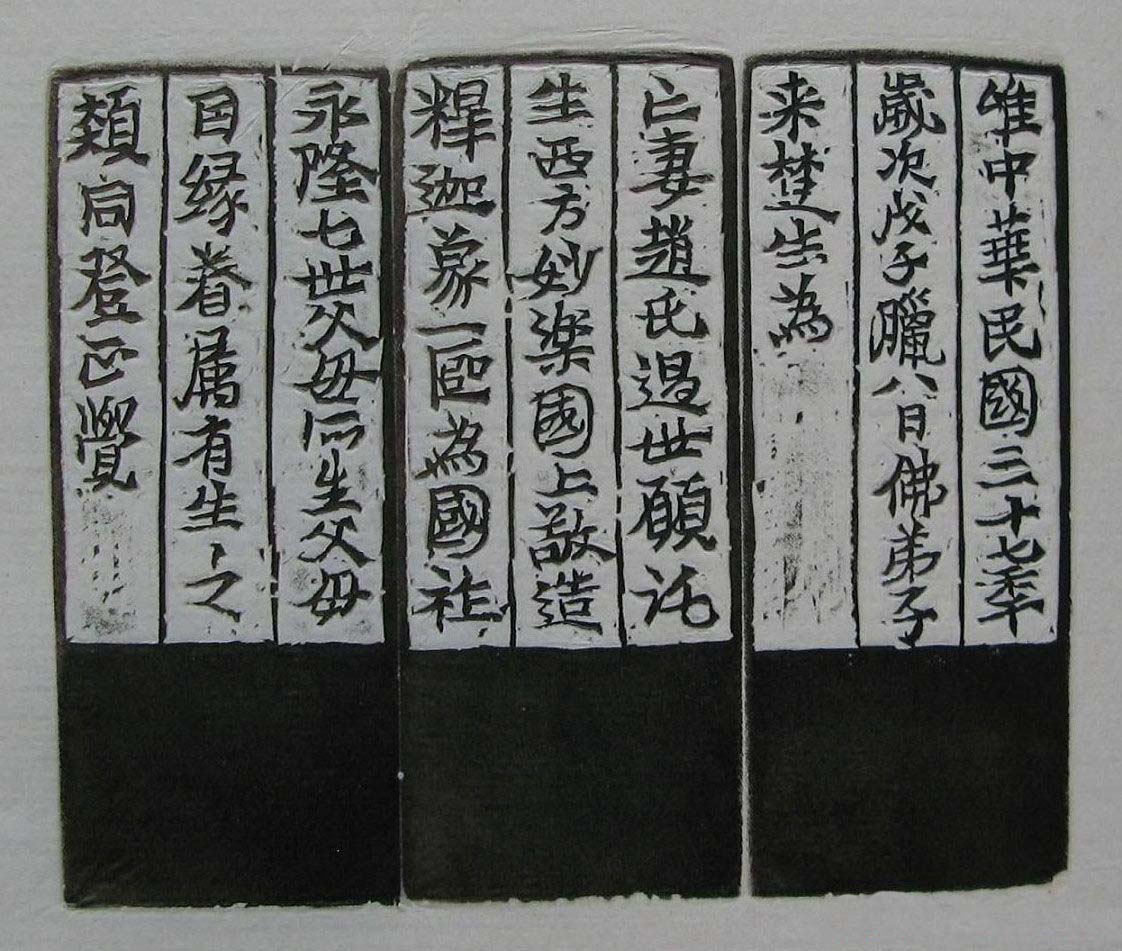 唯中華民國三十七季
歲次戊子臘八日佛弟子
来楚生為
亡妻趙氏過世願託
生西方妙樂國上敬造
釋迦象一區為國祚
永隆七世父母所生父母
因緣眷属有生之
類同登正覺